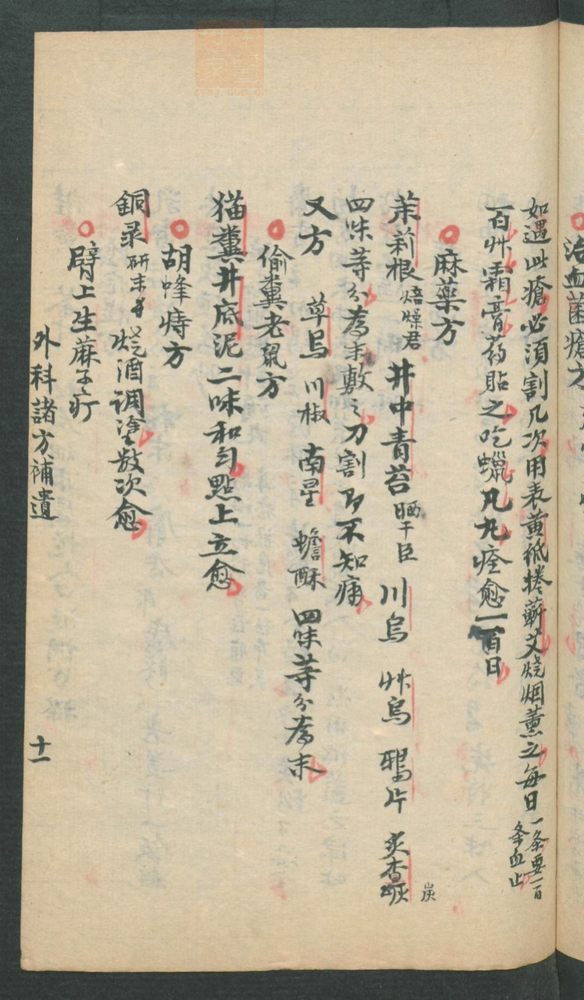 治血菌瘡方
如遇此瘡必須割几次用表黄紙捲蘄艾燒烟薰之每日一条要一百条血止
一百艸霜膏药貼之吃蠟凡丸痊愈一百日
麻藥方
茉莉根焙燥君 井中青苔晒干臣 川烏 艸烏 鴉片 炭
四味等分為末敷之刀割了不知痛
又方 草烏 川椒 南星 蟾酥 四味等分為末
偷糞老鼠方
猫糞井底泥二味和匀點上立愈
胡蜂痔方
銅录研末 燒酒调塗数次愈
臂上生蔴子疔
外科諸方補遺
十一